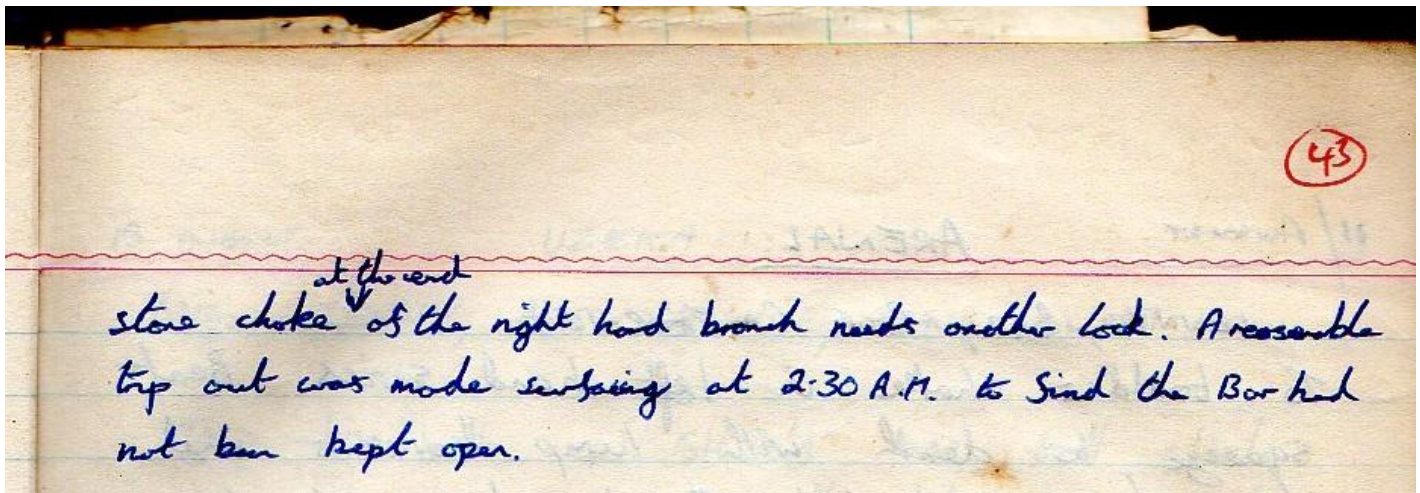 43
at the end
stone choke of the right hand branch needs another look. A reasonable
trip out was made surfacing at 2.30 A.M. to find the Bar had
not been kept open.